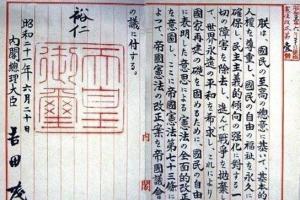 朕は、國民の至高の総意に基いて、基本的
人権を尊重し、國民の自由の福祉を永久に
確保し、民主主義的傾向の強化に対する
一切の障害を除去し、進んで戦争を抛棄し
て、世界永遠の平和を希求し、これにより
國家再建の礎を固めるために、國民の自由
に表明した意思による憲法の全面的改正
を意図し、ここに帝國憲法第七十三條に
よつて、帝國憲法の改正案を帝國議会
内閣
の議に付する。
裕仁
天皇御璽
昭和二十一年六月二十日
内閣總理大臣 吉田茂